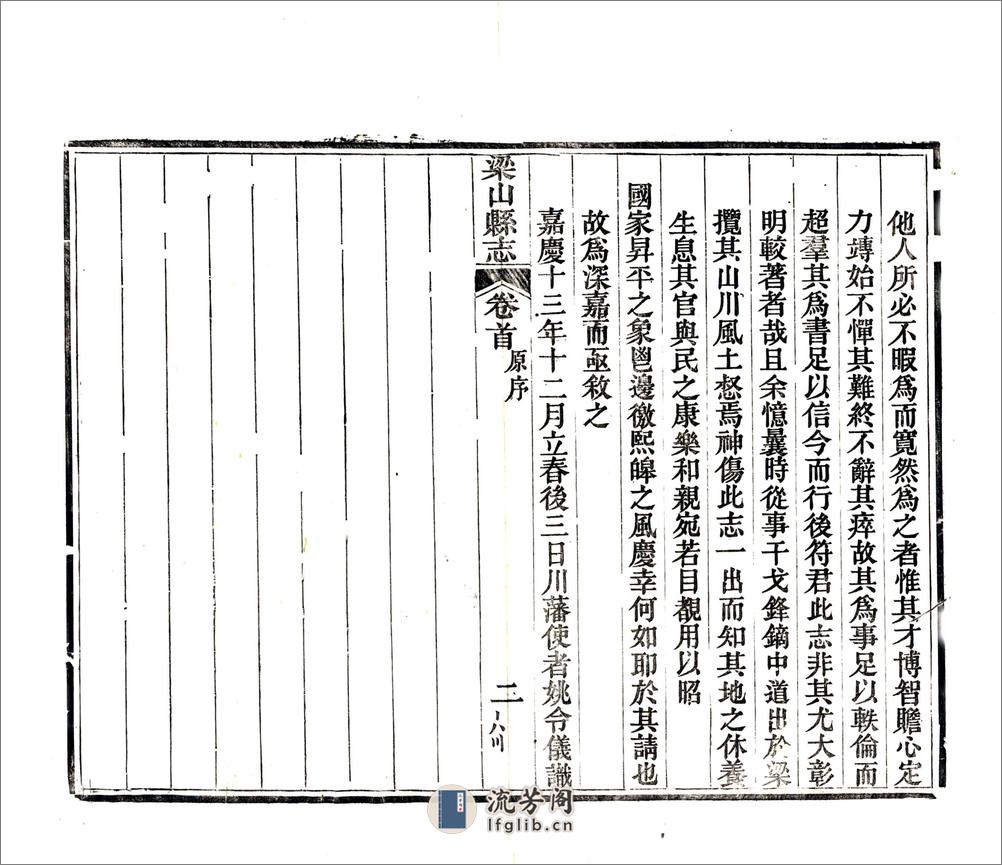 他人所必不暇爲而寬然爲之者惟其才博智贍心定
力竱始不憚其難終不辭其瘁故其爲事足以軼倫而
超羣其爲書足以信今而行後符君此志非其尤大彰
明較著者哉且余憶曩時從事干戈鋒鏑中道出於梁
攬其山川風土惄焉神傷此志一出而知其地之休養
生息其官與民之康樂和親宛若目覩用以昭
國家昇平之象鬯邊徼熙皞之風慶幸何如耶於其請也
故爲深嘉而亟敘之
嘉慶十三年十二月立春後三日川藩使者姚令儀識
梁山縣志 卷首 原序 二
流芳阁
lfglib.cn